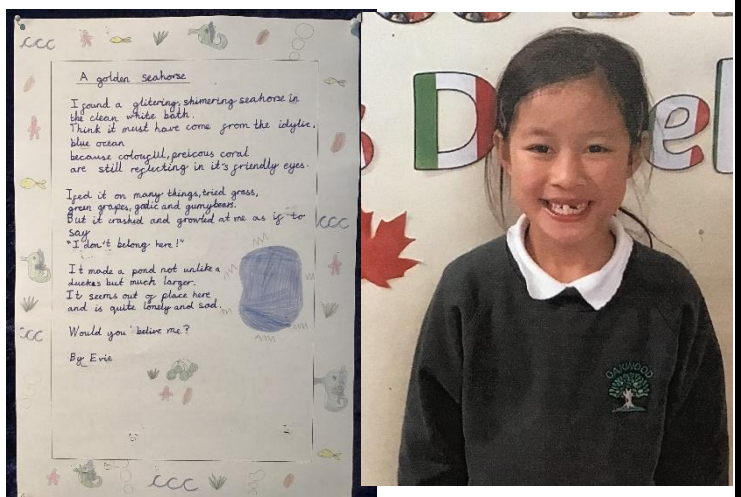 A golden seahorse
I found a glitering, shimering seahorse in
the clean white bath.
Think it must have come from the idylic,
blue ocean
because colouful, preicous coral
are still reflecting in it's friendly eyes.
I feed it on many things, tried grass,
green grapes, galic and gumybears.
But it crashed and growled at me as if to
say
"I don't belong here!"
It made a pond not unlike a
duckes but much larger.
It seems out of place here
and is quite lonely and sad.
Would you belive me?
By Evie
OAKWOOD